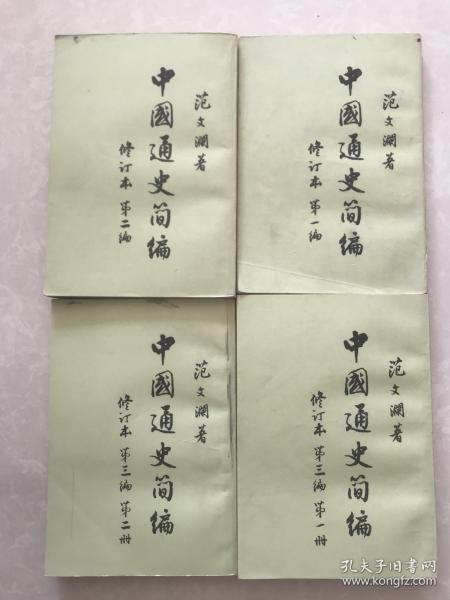 范文瀾著
中國通史简编
修订本 第二编
范文瀾著
中國通史简编
修订本 第一编
范文瀾著
中國通史简编
修订本 第三编 第二册
范文瀾著
中國通史简编
修订本 第三编 第一册
孔夫子旧书网
www.kongfz.com